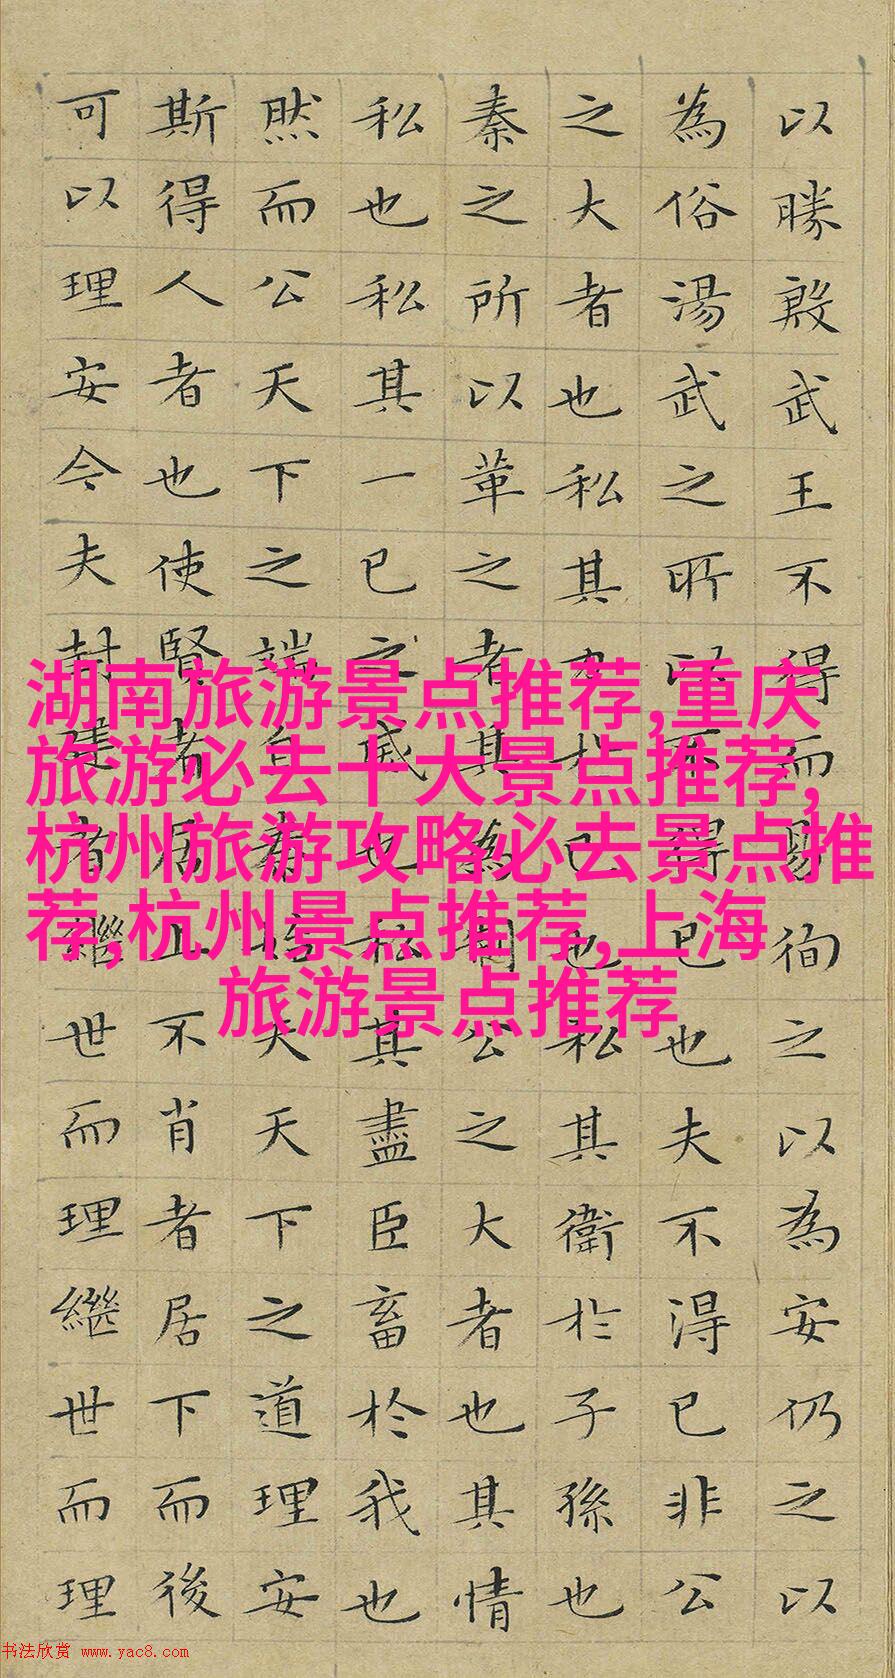 以勝殷武王不得而易徇之以為安仍之以
為俗湯武之所以不得已也夫不得已非公
之大者也私其力於已也私其衛於子孫也
秦之所以革之者其為制公之大者也其情
私也私其一已之威也私其盡臣畜於我也
然而公天下之端自秦始夫天下之道理安
斯得人者也使賢者居上不肖者居下而後
可以理安今夫封建者繼世而理繼世而理
湖南旅游景点推荐,重庆
旅游必去十大景点推荐,
杭州旅游攻略必去景点推
荐,杭州景点推荐,上海
旅游景点推荐
书法欣赏 www.yac8.com